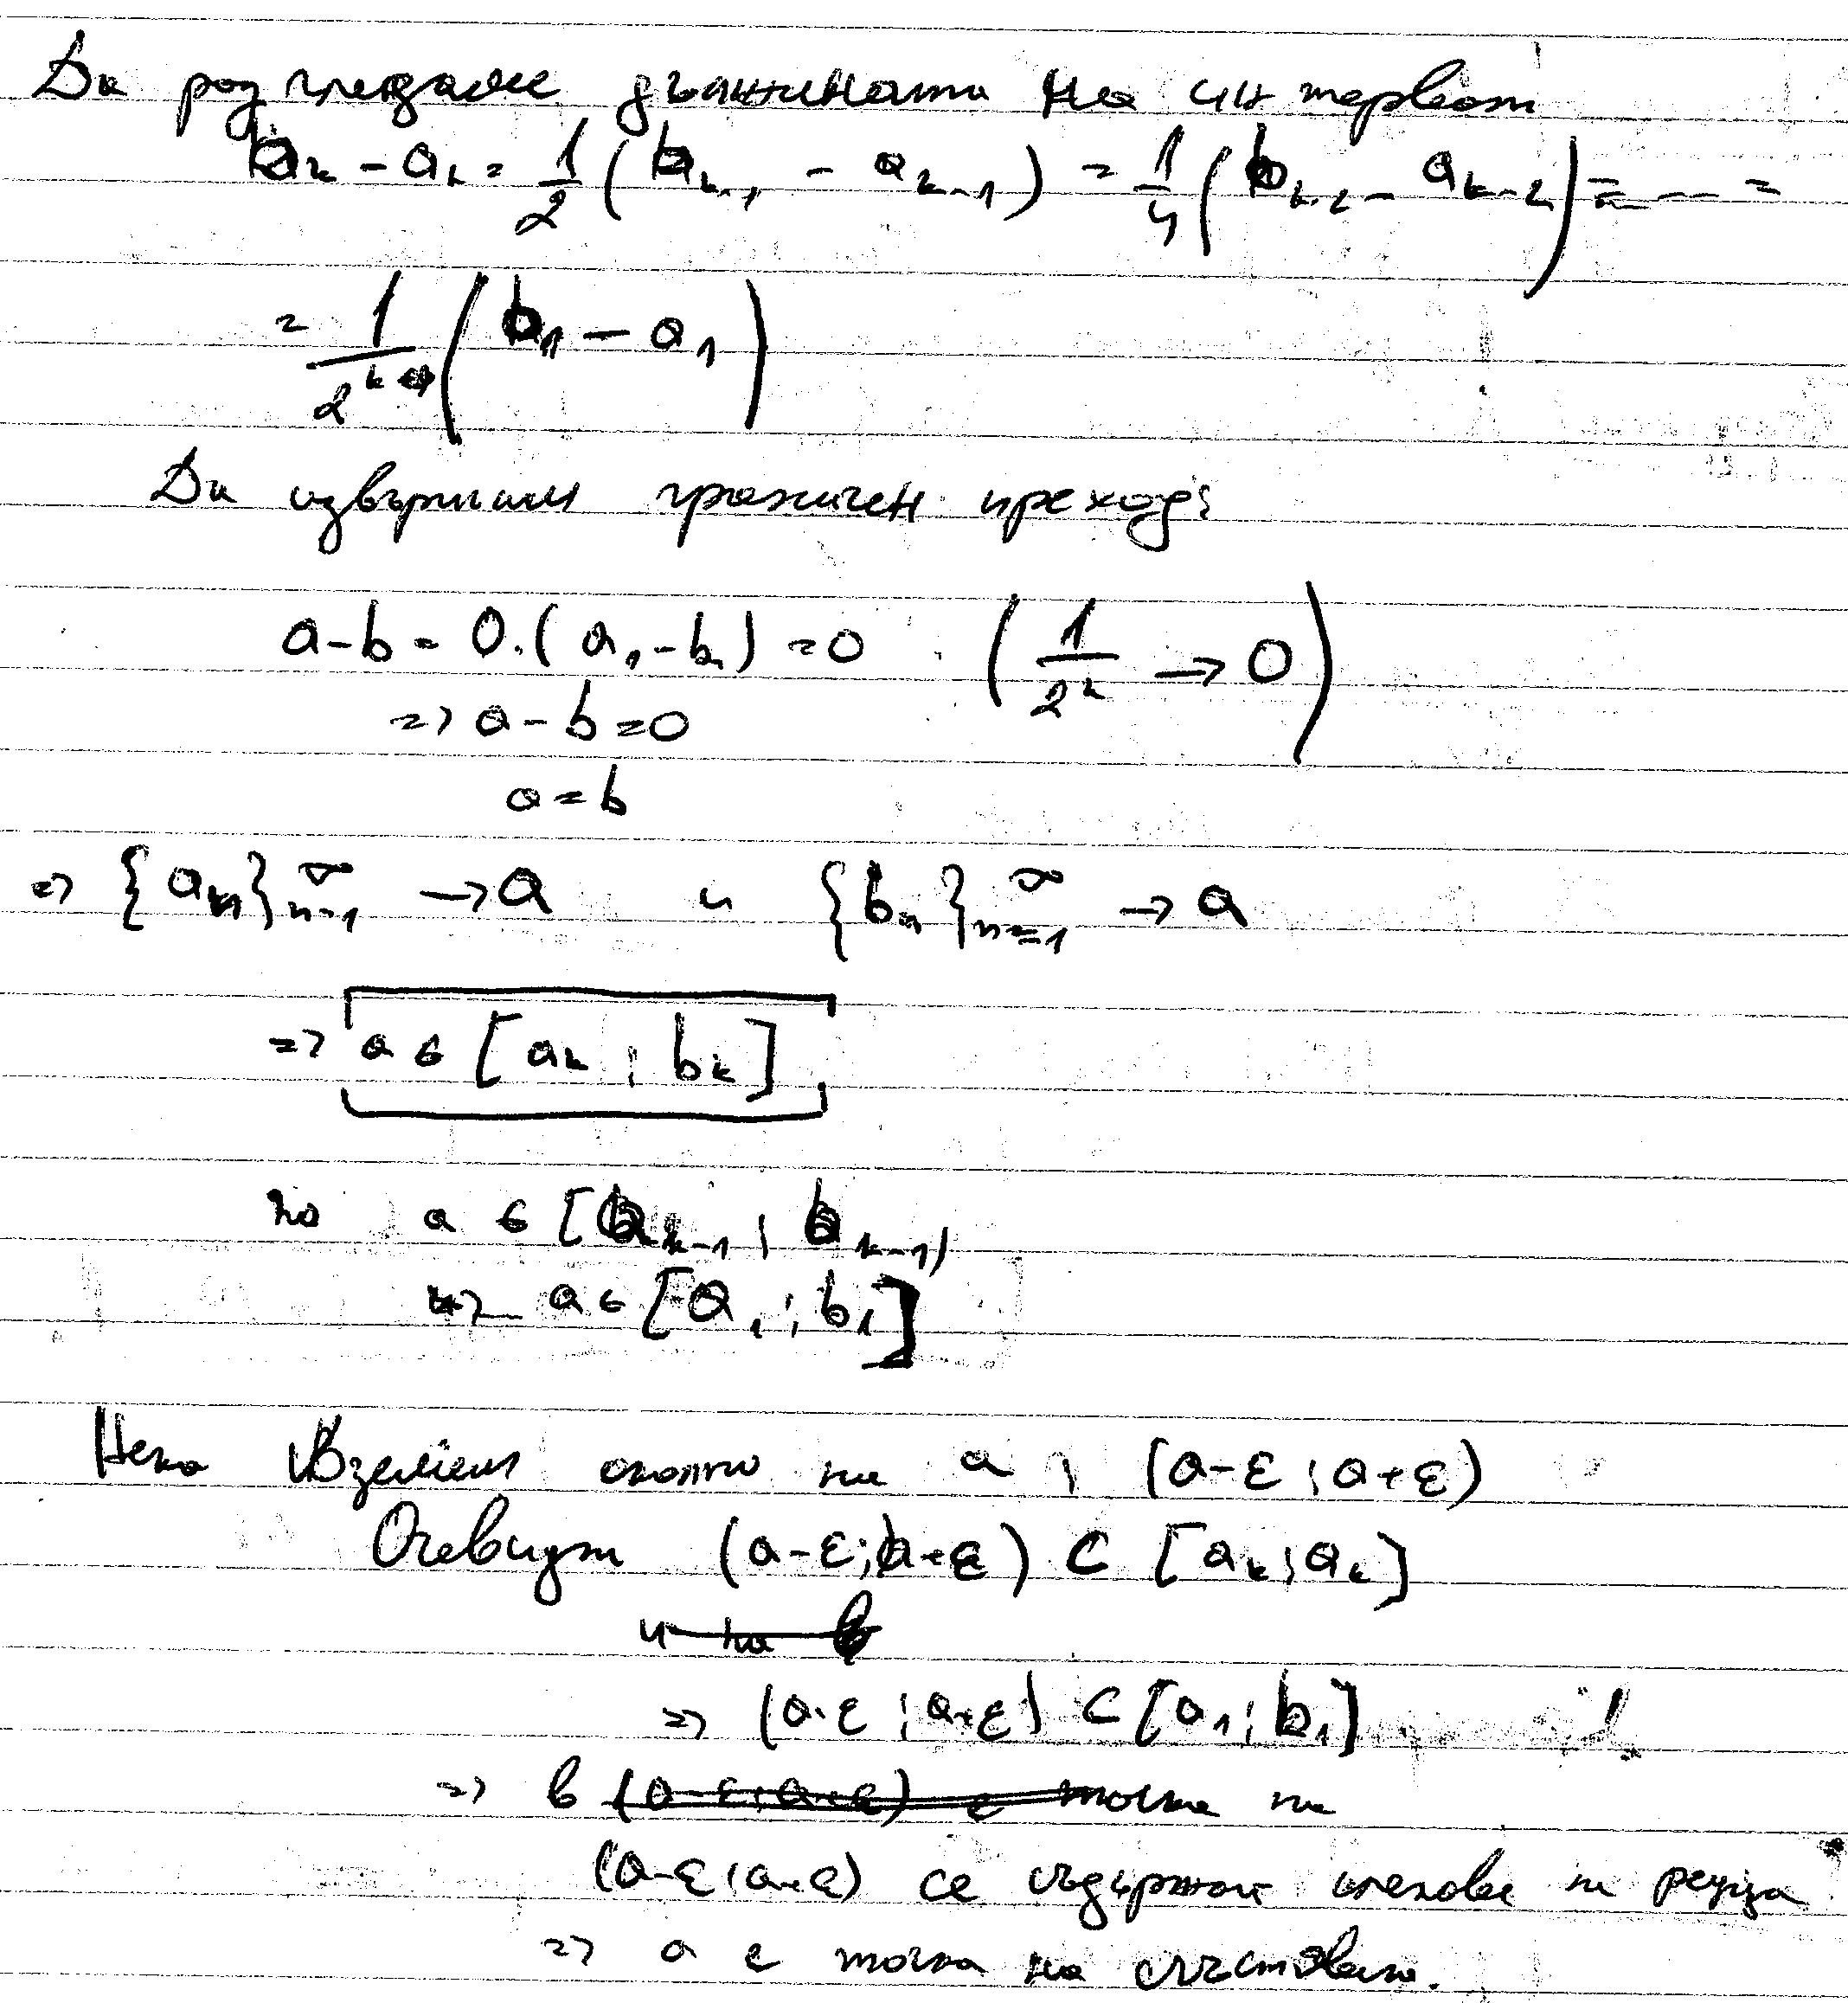 Да разгледаме дължината на интервал
b_k - a_k = 1/2 (b_{k-1} - a_{k-1}) = 1/4 (b_{k-2} - a_{k-2}) = --- =
= 1/2^k (b_1 - a_1)
Да извършим граничен преход:
a - b = 0.(a_1 - b_1) = 0 (1/2^k → 0)
=> a - b = 0
a = b
=> {a_n}_{n=1}^∞ → a и {b_n}_{n=1}^∞ → a
=> a ∈ [a_k ; b_k]
но a ∈ [a_{k-1} ; b_{k-1})
=> a ∈ [a_1 ; b_1]
Нека вземем околно на a ; (a-ε ; a+ε)
Очевидно (a-ε ; a+ε) ⊂ [a_k ; a_k]
=> (a-ε ; a+ε) ⊂ [a_1 ; b_1]
=> в (a-ε ; a+ε) е точка на
(a-ε ; a+ε) се съдържат членове на реда
=> a е точка на сгъстяване.